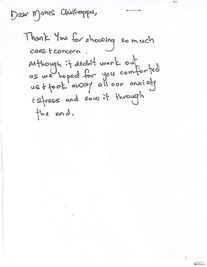 Dear Mones Chukrappa,
Thank You for showing so much
care & concern.
Although it didn't work out
as we hoped for you comforted
us & took away all our anxiety
& stress and saw it through
the end.